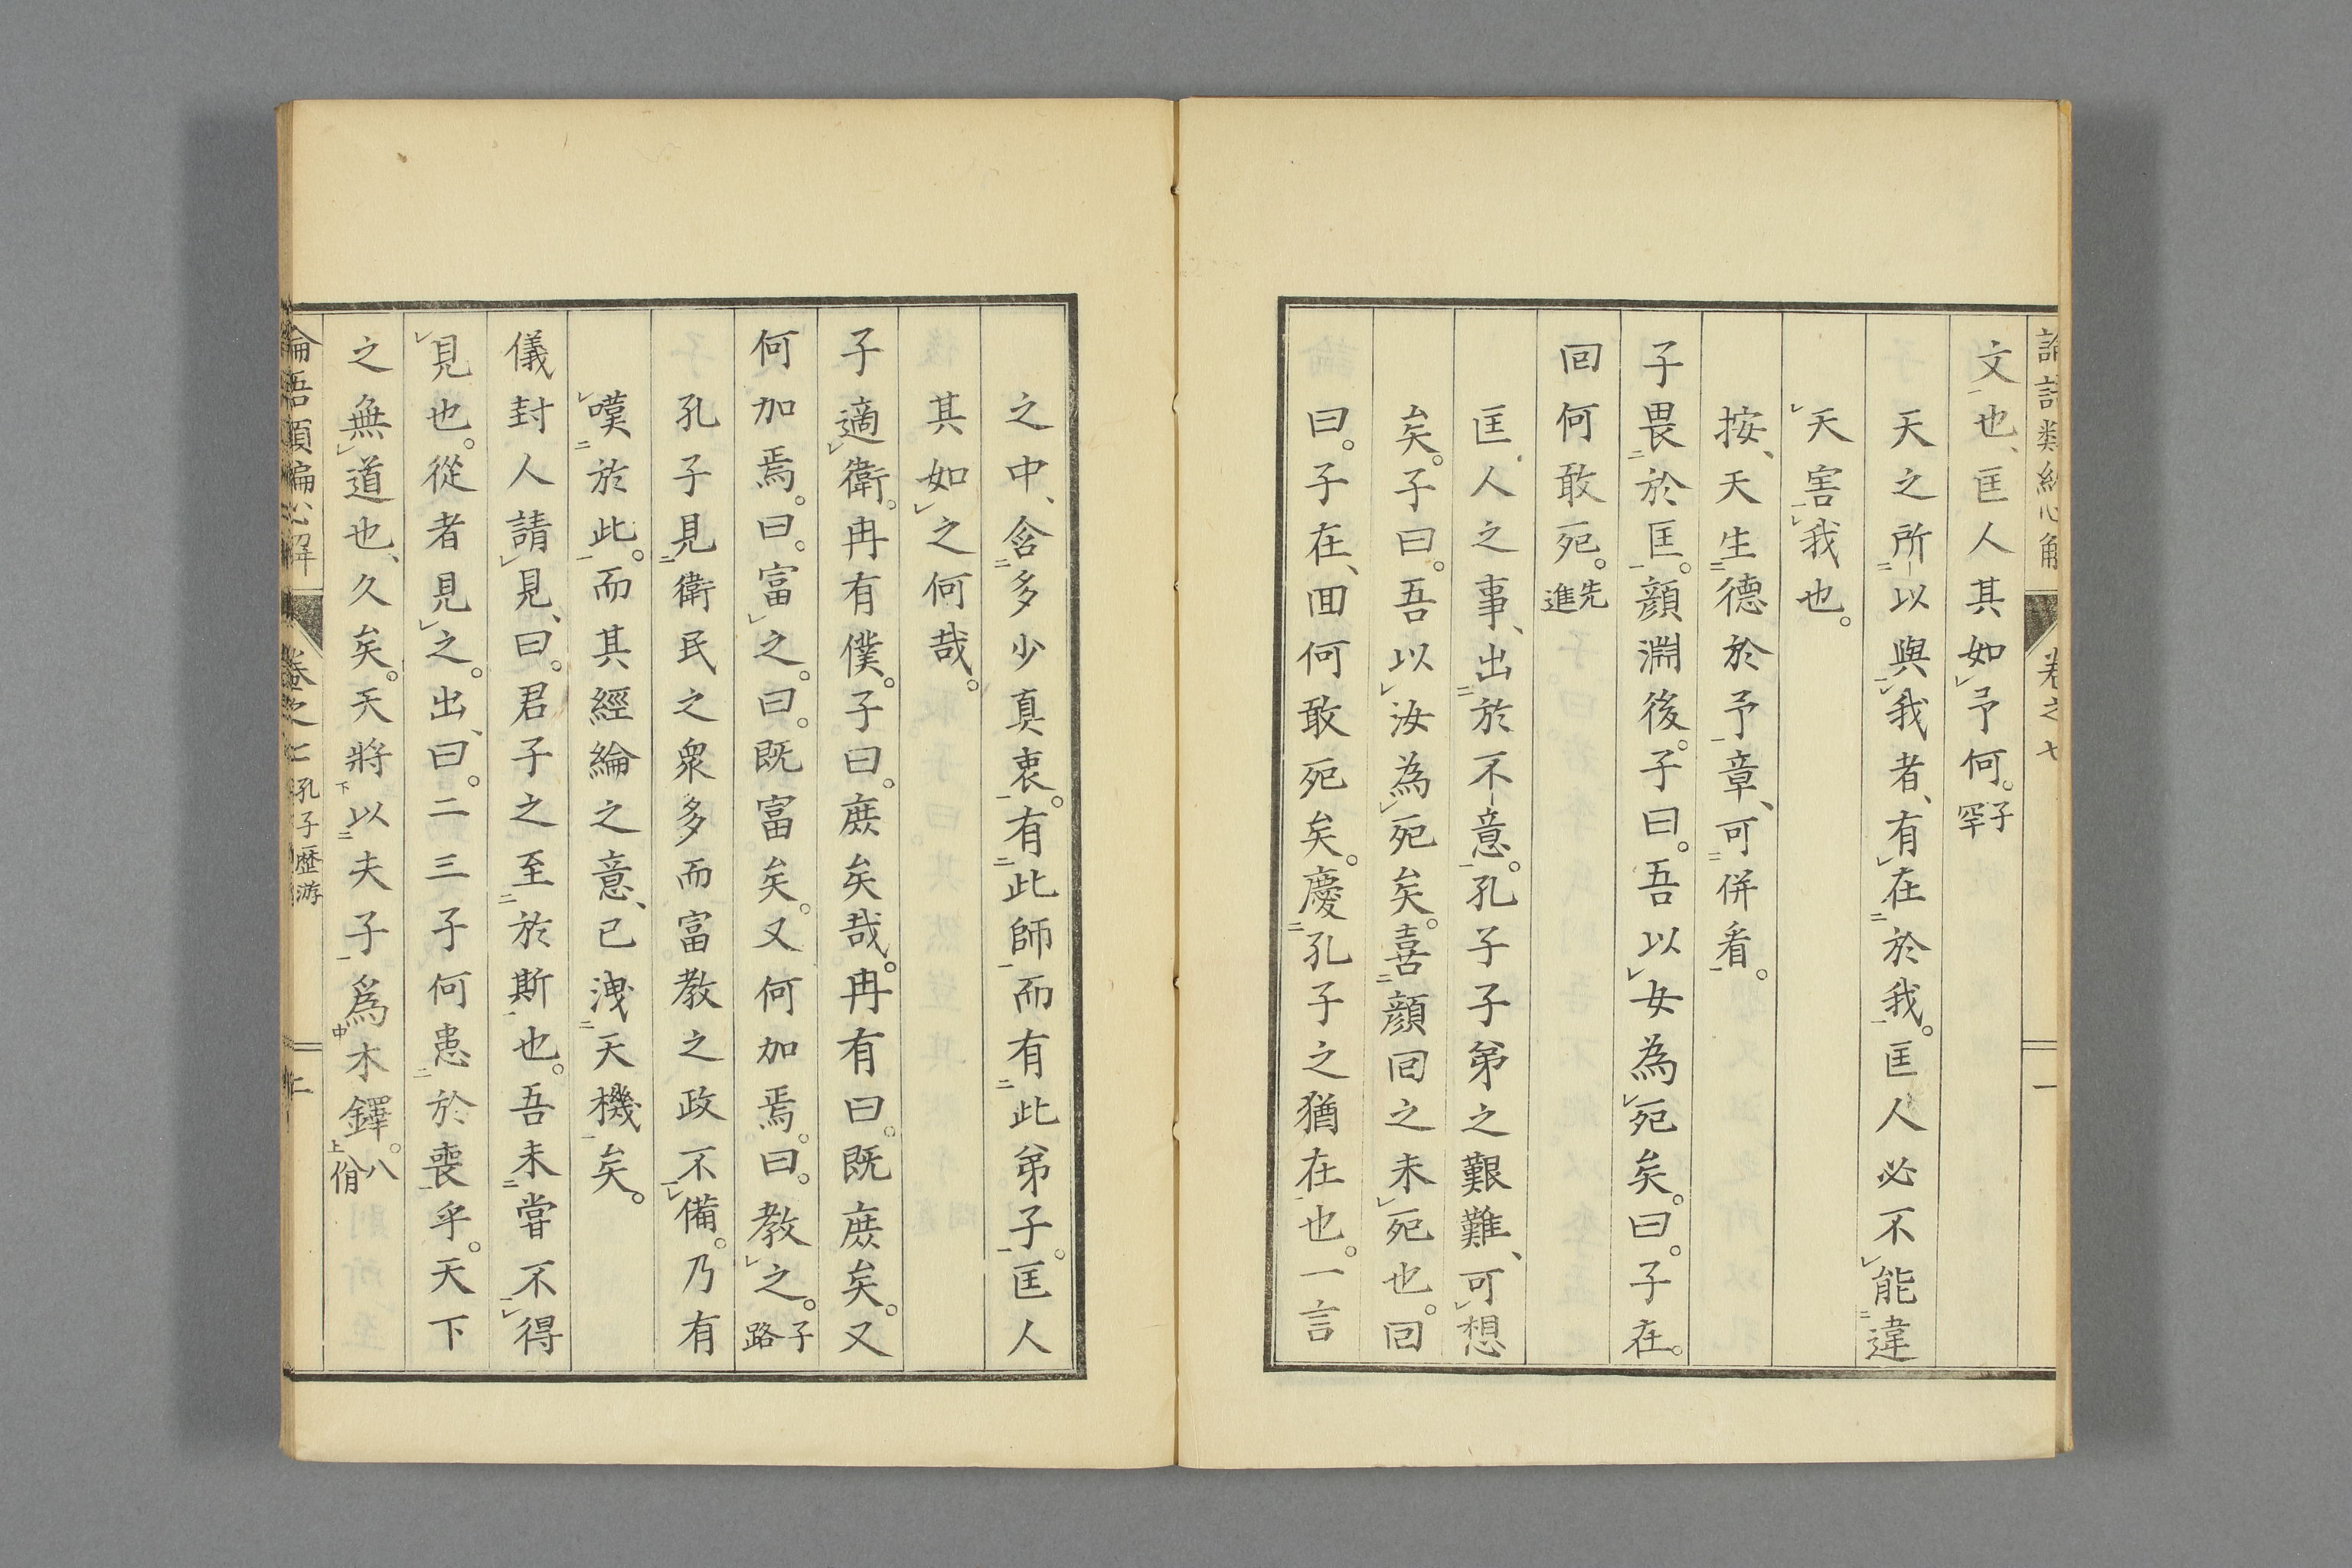 論語類編心解 卷之七 一
文也、匡人其如予何。子罕
天之所以與我者、有在於我。匡人必不能違
天害我也。
按、天生德於予章、可併看。
子畏於匡。顏淵後。子曰。吾以女為死矣。曰。子在。
回何敢死。先進
匡人之事、出於不意。孔子子弟之艱難、可想
矣。子曰。吾以汝為死矣。喜顏回之未死也。回
曰。子在、回何敢死矣。慶孔子之猶在也。一言
之中、含多少真衷。有此師而有此弟子。匡人
其如之何哉。
子適衛。冉有僕。子曰。庶矣哉。冉有曰。既庶矣。又
何加焉。曰。富之。曰。既富矣。又何加焉。曰。教之。子路
孔子見衛民之衆多而富教之政不備。乃有
嘆於此。而其經綸之意、已洩天機矣。
儀封人請見、曰。君子之至於斯也。吾未嘗不得
見也。從者見之。出、曰。二三子何患於喪乎。天下
之無道也、久矣。天將以夫子爲木鐸。八佾
論語類編心解 卷之七 孔子歷游 二